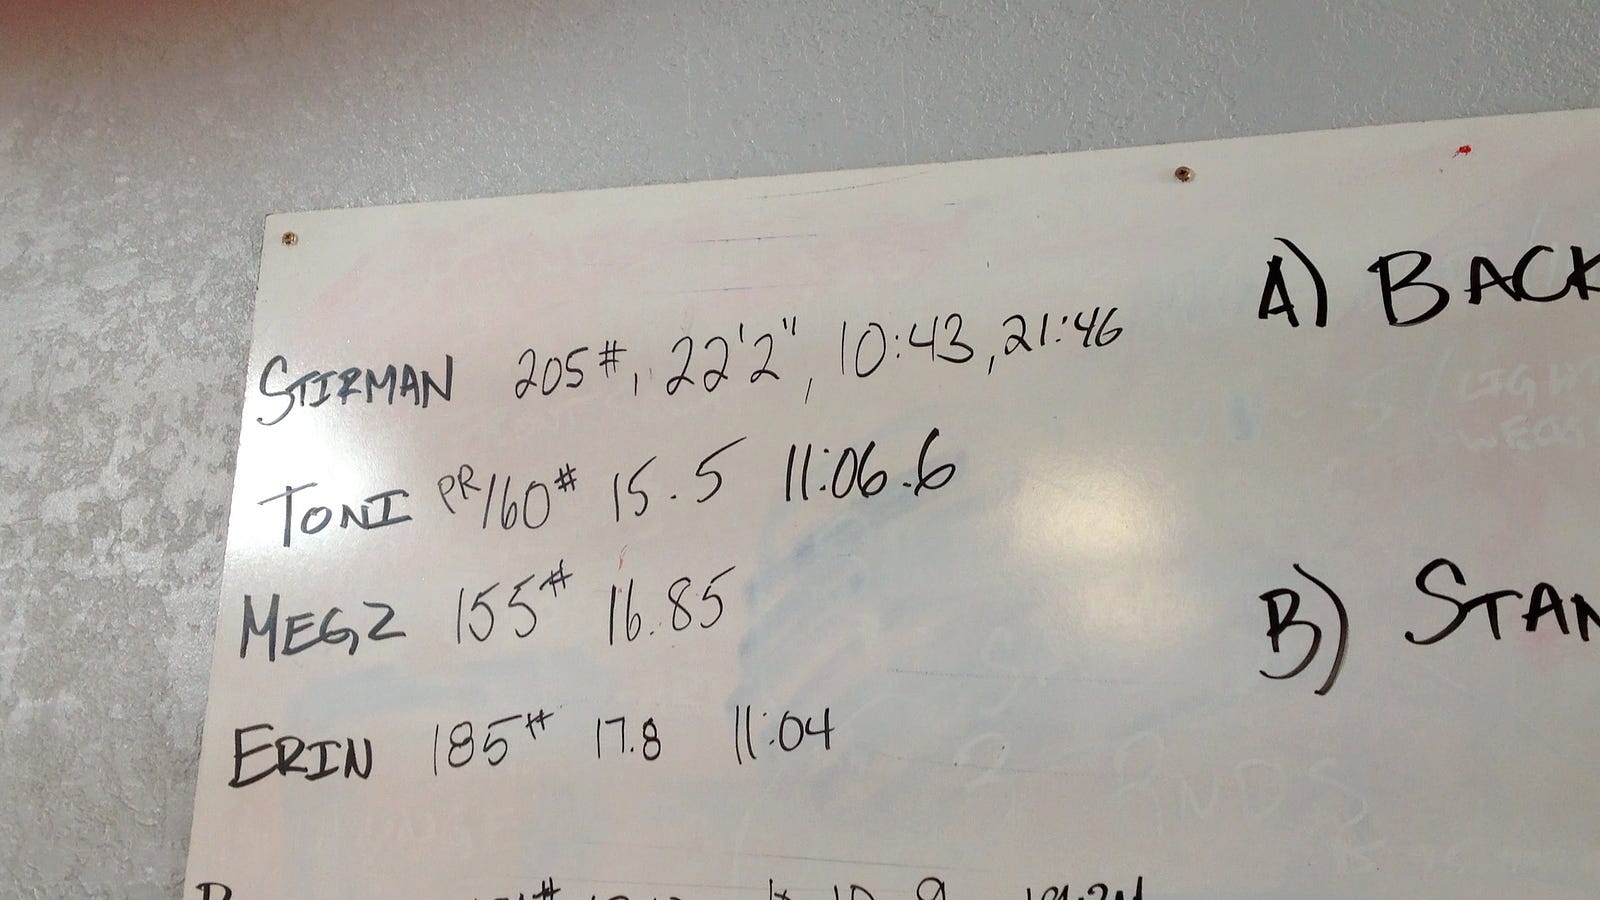 STIRMAN 205#, 22'2", 10:43, 21:46
TONI PR/160# 15.5 11:06.6
MEGZ 155# 16.85
ERIN 185# 17.8 11:04
A) BACK
B) STAN